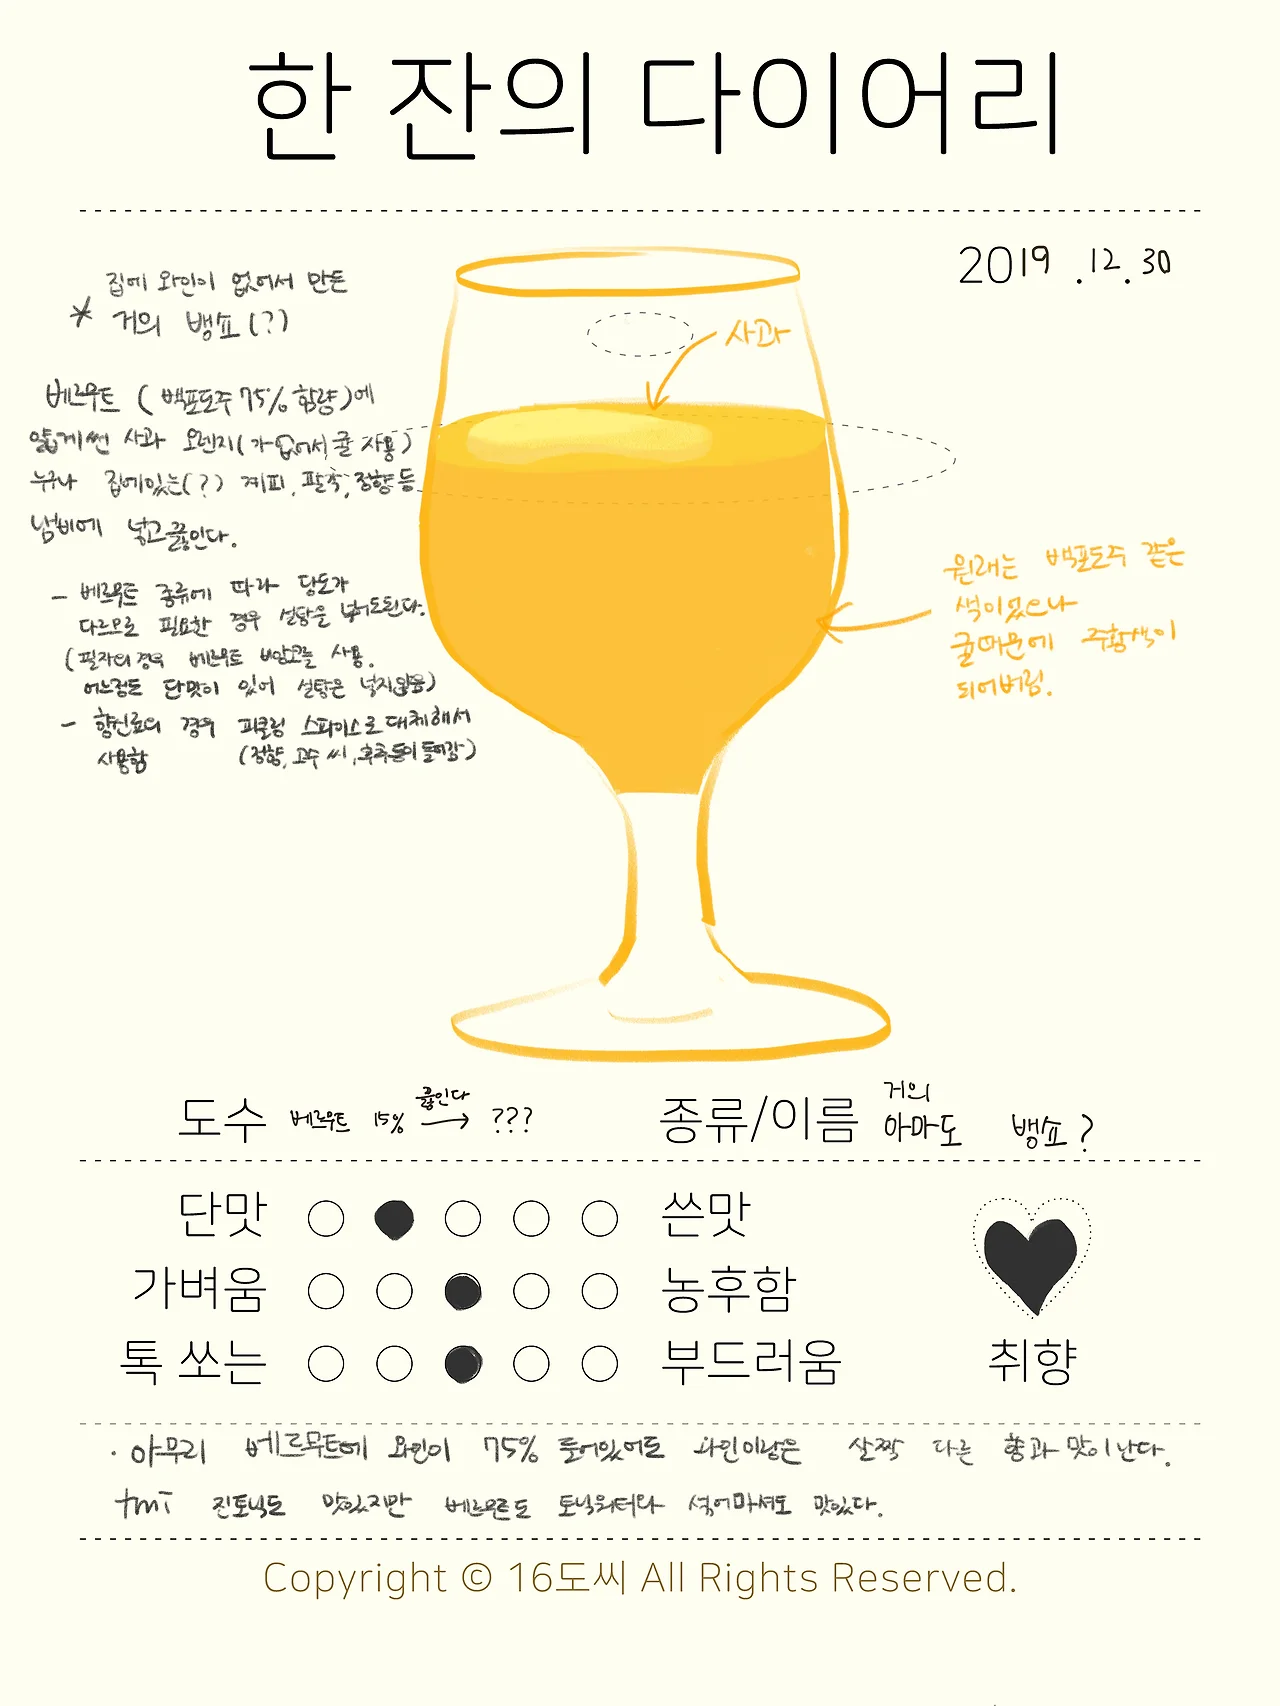 한 잔의 다이어리
2019 .12.30
집에 와인이 없어서 만든
* 거의 뱅쇼(?)
사과
베르무트 ( 백포도주 75% 함량)에
얇게썬 사과 오렌지(가 없어서 귤 사용)
누구나 집에있는(?) 계피, 팔각, 정향 등
냄비에 넣고 끓인다.
- 베르무트 종류에 따라 당도가
다르므로 필요한 경우 설탕을 넣어도된다.
(필자의 경우 베르무트 비앙코를 사용.
어느정도 단맛이 있어 설탕은 넣지않음)
- 향신료의 경우 피클링 스파이스로 대체해서
사용함 (정향, 고수 씨, 후추 등이 들어감)
원래는 백포도주 같은
색이었으나
귤때문에 주황색이
되어버림.
도수 베르무트 15% 끓인다 → ???
종류/이름 거의 아마도 뱅쇼?
단맛 쓴맛
가벼움 농후함
톡 쏘는 부드러움
취향
· 아무리 베르무트에 와인이 75% 들어있어도 와인이랑은 살짝 다른 향과 맛이 난다.
tmi 진토닉도 맛있지만 베르무트도 토닉워터와 섞어마셔도 맛있다.
Copyright © 16도씨 All Rights Reserved.